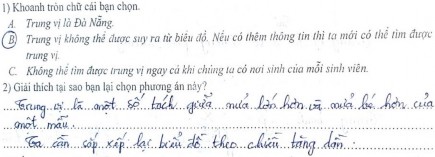 1) Khoanh tròn chữ cái bạn chọn.
A. Trung vị là Đà Nẵng.
B. Trung vị không thể được suy ra từ biểu đồ. Nếu có thêm thông tin thì ta mới có thể tìm được
trung vị.
C. Không thể tìm được trung vị ngay cả khi chúng ta có nơi sinh của mỗi sinh viên.
2) Giải thích tại sao bạn lại chọn phương án này?
Trung vị là một số tách giữa nửa lớn hơn và nửa bé hơn của
một mẫu.
Ta cần sắp xếp lại biểu đồ theo chiều tăng dần.